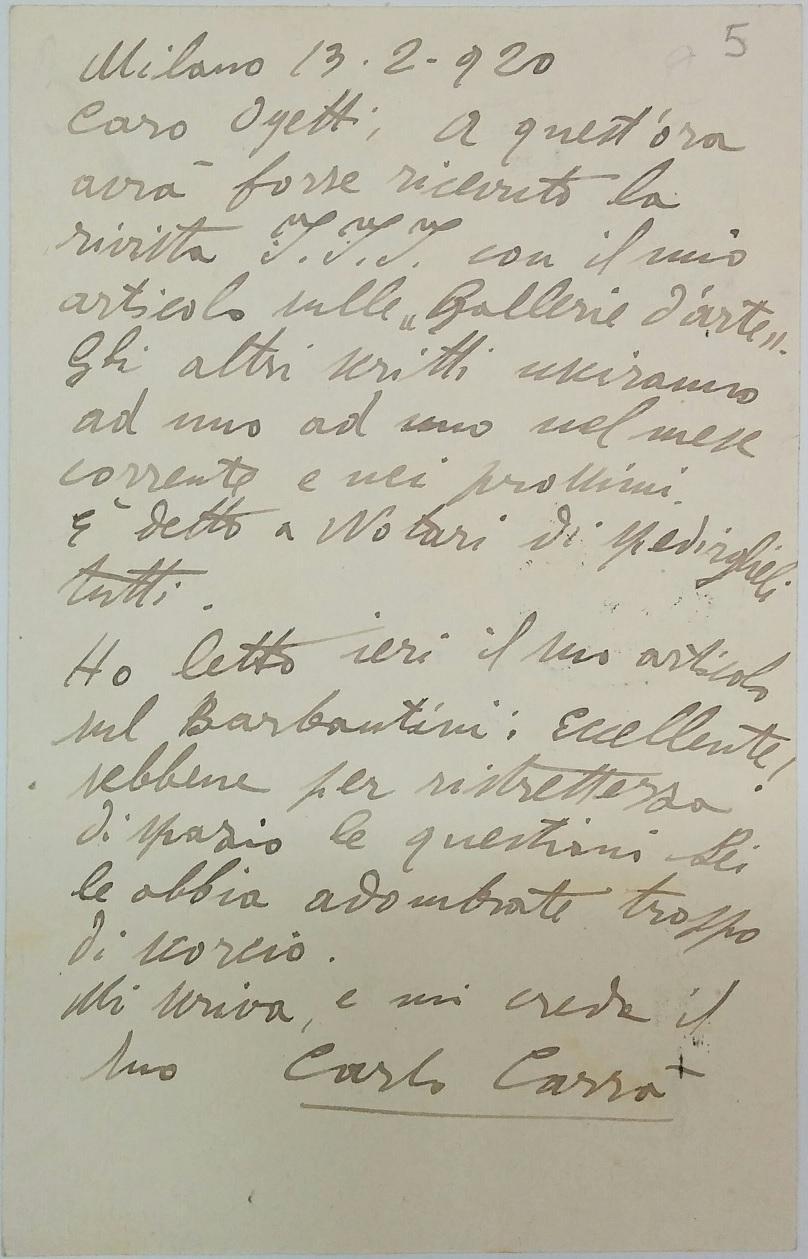 5
Milano 13. 2 - 920
Caro Ogetti, A quest'ora
avrà forse ricevuto la
rivista I.I.I. con il mio
articolo sulle „Gallerie d'arte„.
Gli altri scritti usciranno
ad uno ad uno nel mese
corrente e nei prossimi.
È detto a Notari di spedirglieli
tutti.
Ho letto ieri il suo articolo
sul Barbantini: Eccellente!
sebbene per ristrettezza
di spazio le questioni Lei
le abbia adombrate troppo
di scorcio.
Mi scriva, e mi creda il
suo Carlo Carrà